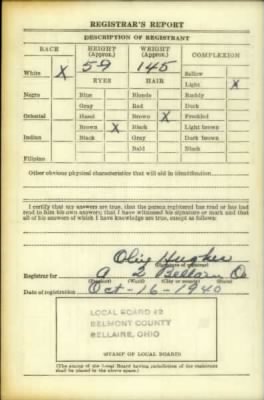 REGISTRAR'S REPORT
DESCRIPTION OF REGISTRANT
RACE HEIGHT (Approx.) WEIGHT (Approx.) COMPLEXION
59 145
White X Sallow
EYES HAIR Light X
Negro Blue Blonde Ruddy
Gray Red Dark
Oriental Hazel Brown X Freckled
Brown X Black Light brown
Indian Black Gray Dark brown
Bald Black
Filipino
Other obvious physical characteristics that will aid in identification
I certify that my answers are true; that the person registered has read or has had
read to him his own answers; that I have witnessed his signature or mark and that
all of his answers of which I have knowledge are true, except as follows:
Olive Hughes
(Signature of registrar)
Registrar for A 2 Bellaire O.
(Precinct) (Ward) (City or county) (State)
Date of registration Oct-16-1940
LOCAL BOARD #2
BELMONT COUNTY
BELLAIRE, OHIO
(STAMP OF LOCAL BOARD)
(The stamp of the Local Board having jurisdiction of the registrant
shall be placed in the above space.)